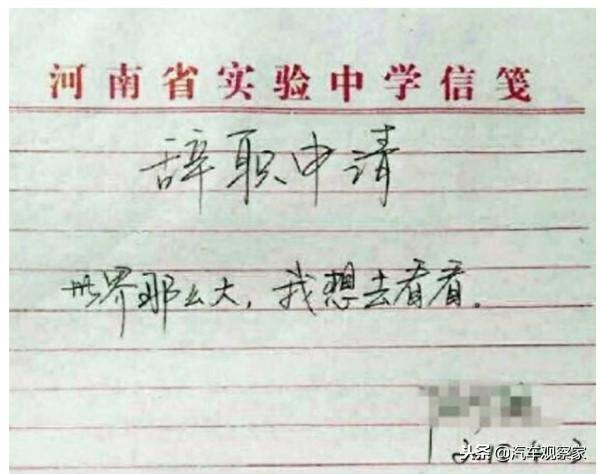 河南省实验中学信笺
辞职申请
世界那么大，我想去看看。
头条@汽车观察家